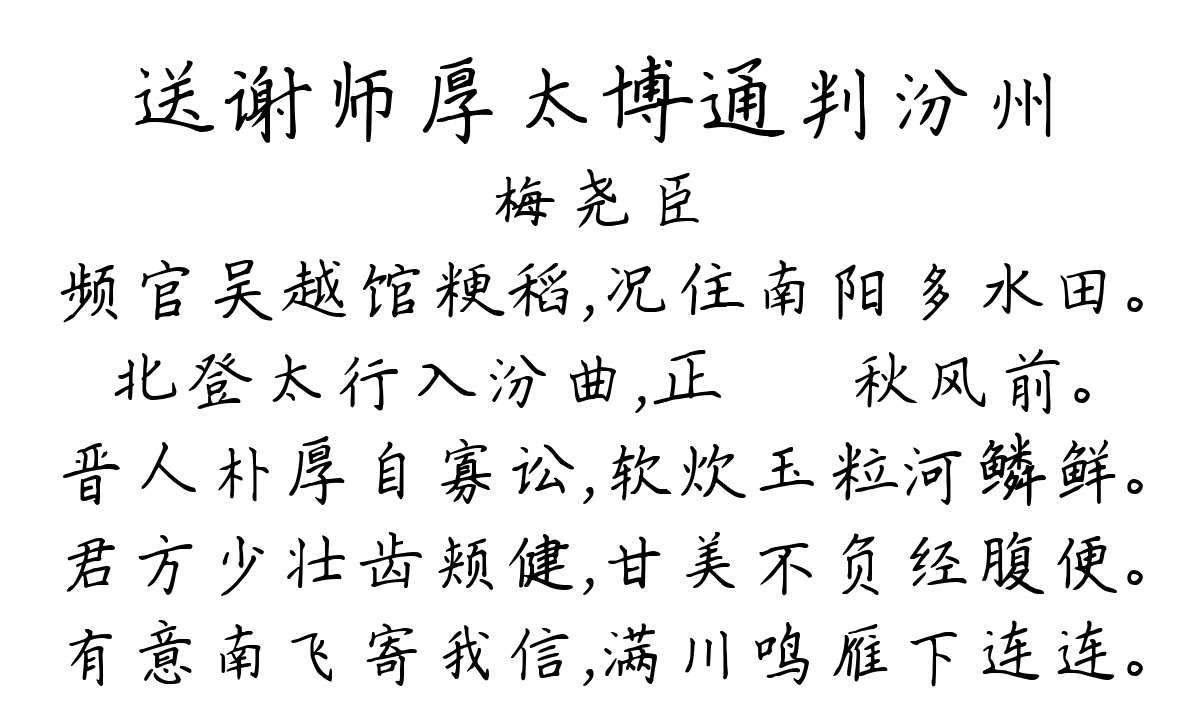 送谢师厚太博通判汾州
梅尧臣
频官吴越馆粳稻,况住南阳多水田。
北登太行入汾曲,正 秋风前。
晋人朴厚自寡讼,软炊玉粒河鳞鲜。
君方少壮齿颊健,甘美不负经腹便。
有意南飞寄我信,满川鸣雁下连连。